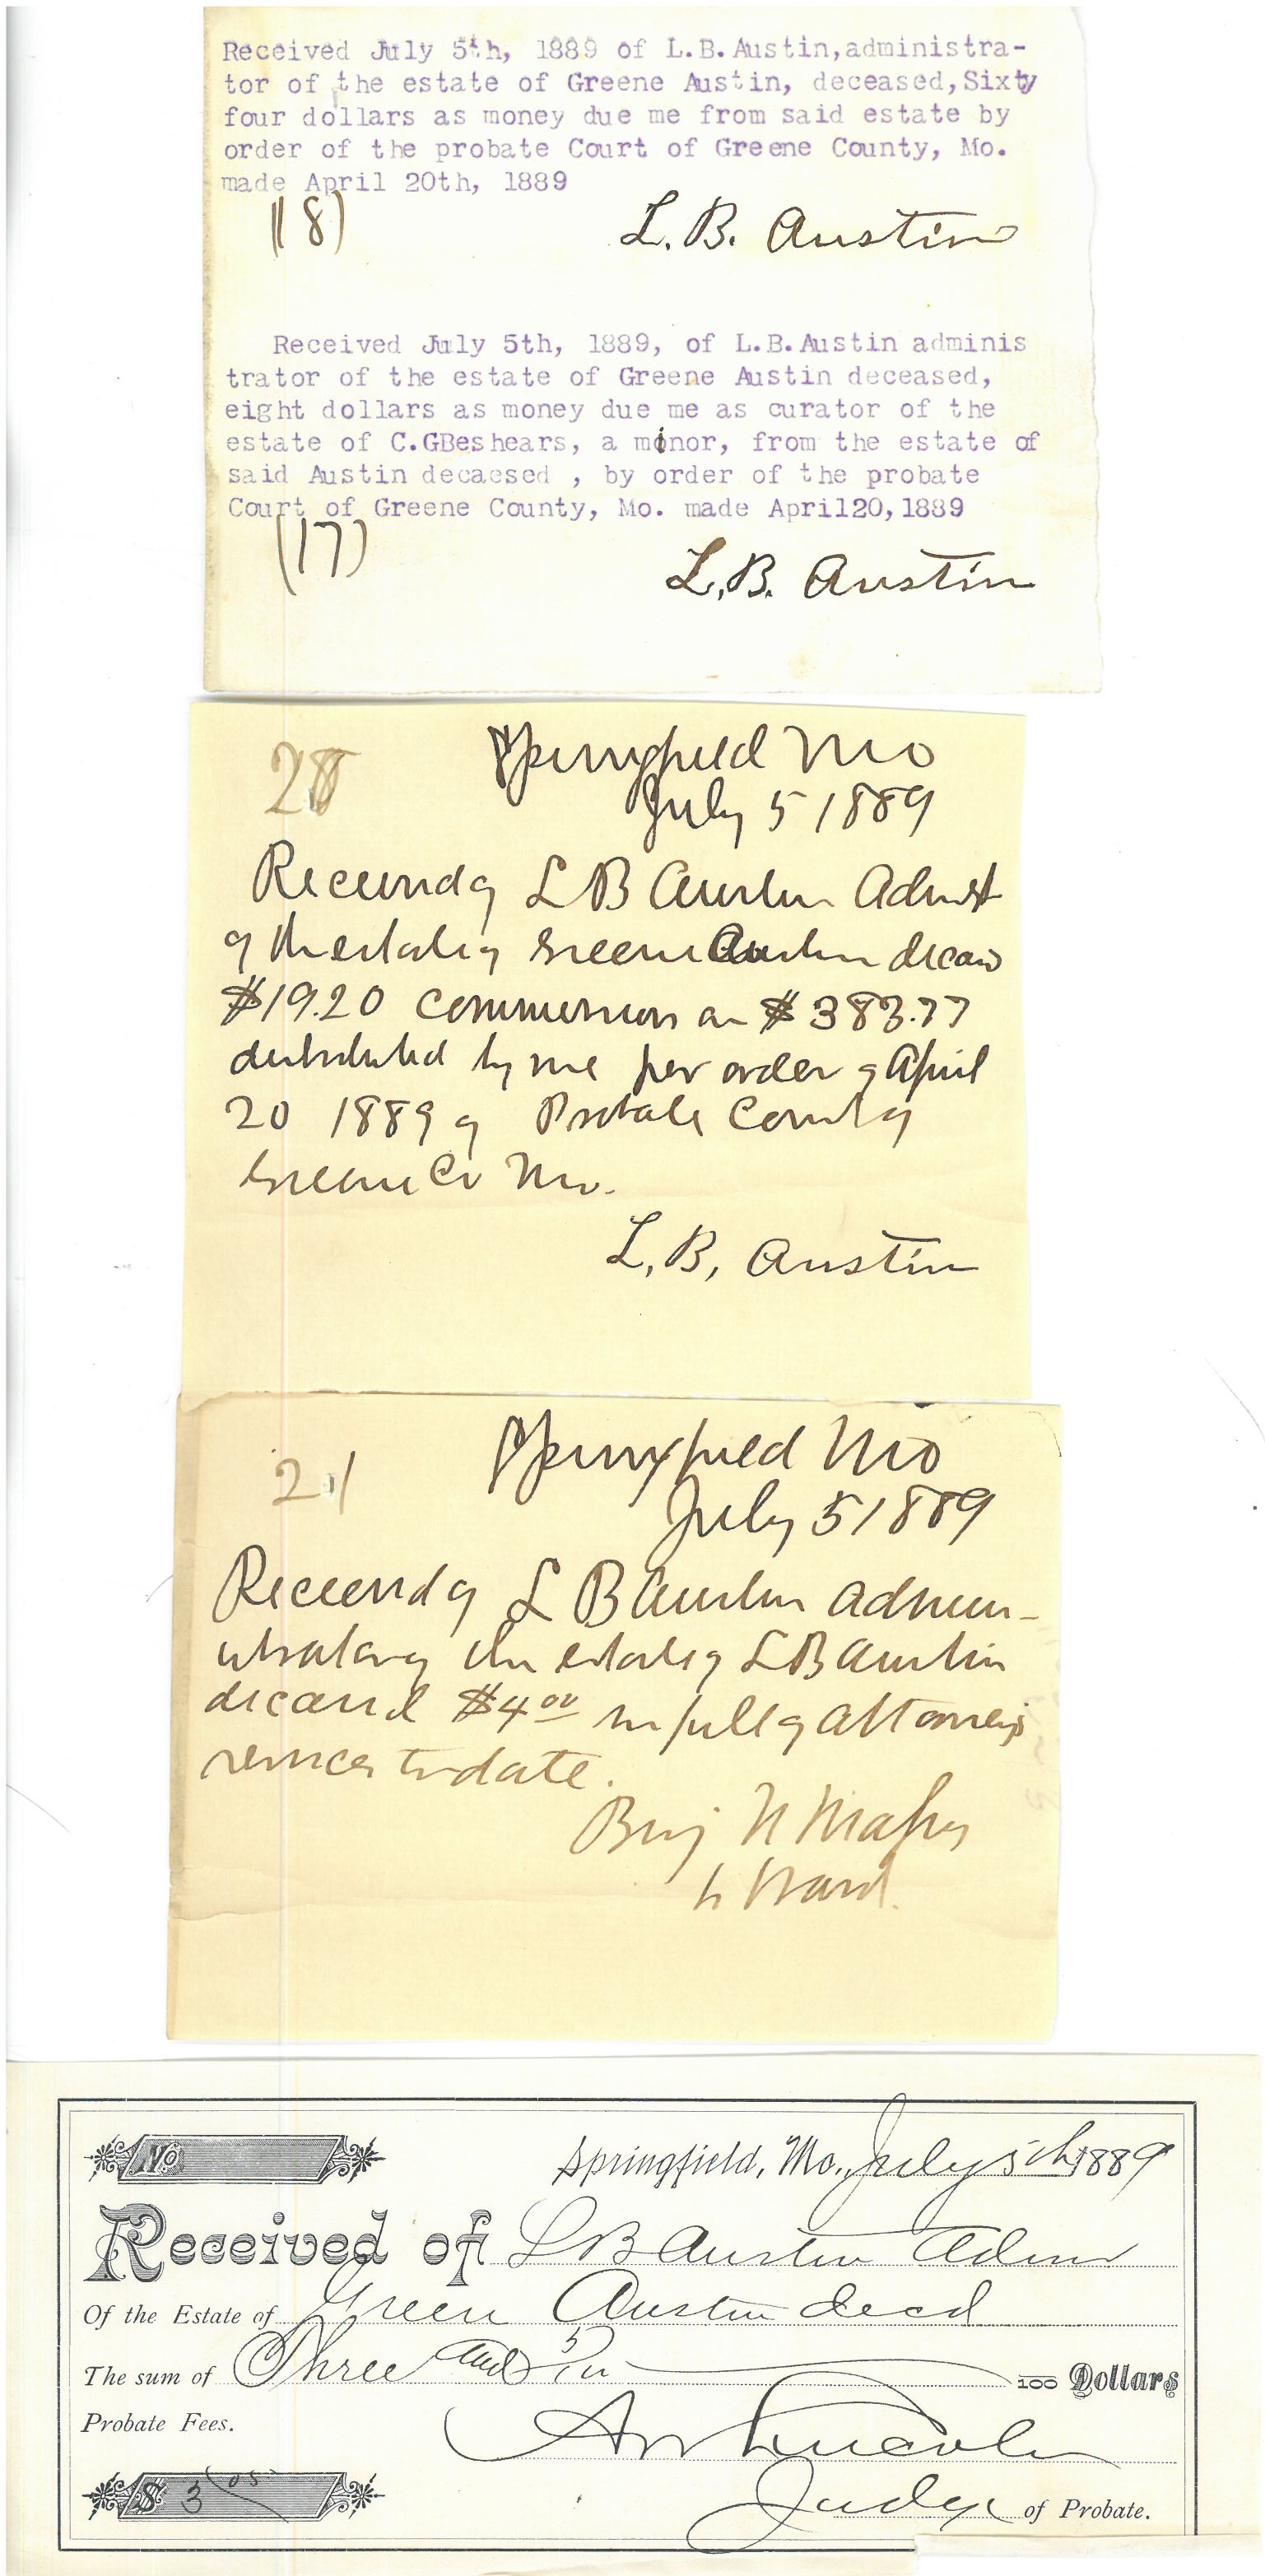 Received July 5th, 1889 of L.B.Austin,administra-
tor of the estate of Greene Austin, deceased,Sixty
four dollars as money due me from said estate by
order of the probate Court of Greene County, Mo.
made April 20th, 1889
(18)
L. B. Austin
Received July 5th, 1889, of L.B.Austin adminis
trator of the estate of Greene Austin deceased,
eight dollars as money due me as curator of the
estate of C.GBeshears, a minor, from the estate of
said Austin decaesed , by order of the probate
Court of Greene County, Mo. made April20,1889
(17)
L.B. Austin
Springfield Mo
July 5 1889
Received of L B Austin Admst
of the estate of Greene Austin
$19.20 commission on $383.77
distributed by me per order of April
20 1889 of Probate Court of
Greene Co Mo.
L, B, Austin
21
Springfield Mo
July 5 1889
Received of L B Austin admin-
istrator of the estate of L B Austin
deceased $4 00 in full of attorneys
services to date.
Benj N
Springfield, Mo., July 5th 1889
No
Received of L B Austin Admr
Of the Estate of Green Austin decd
The sum of Three and 5/100 Dollars
Probate Fees.
Lincoln
$ 3 05
Judge of Probate.